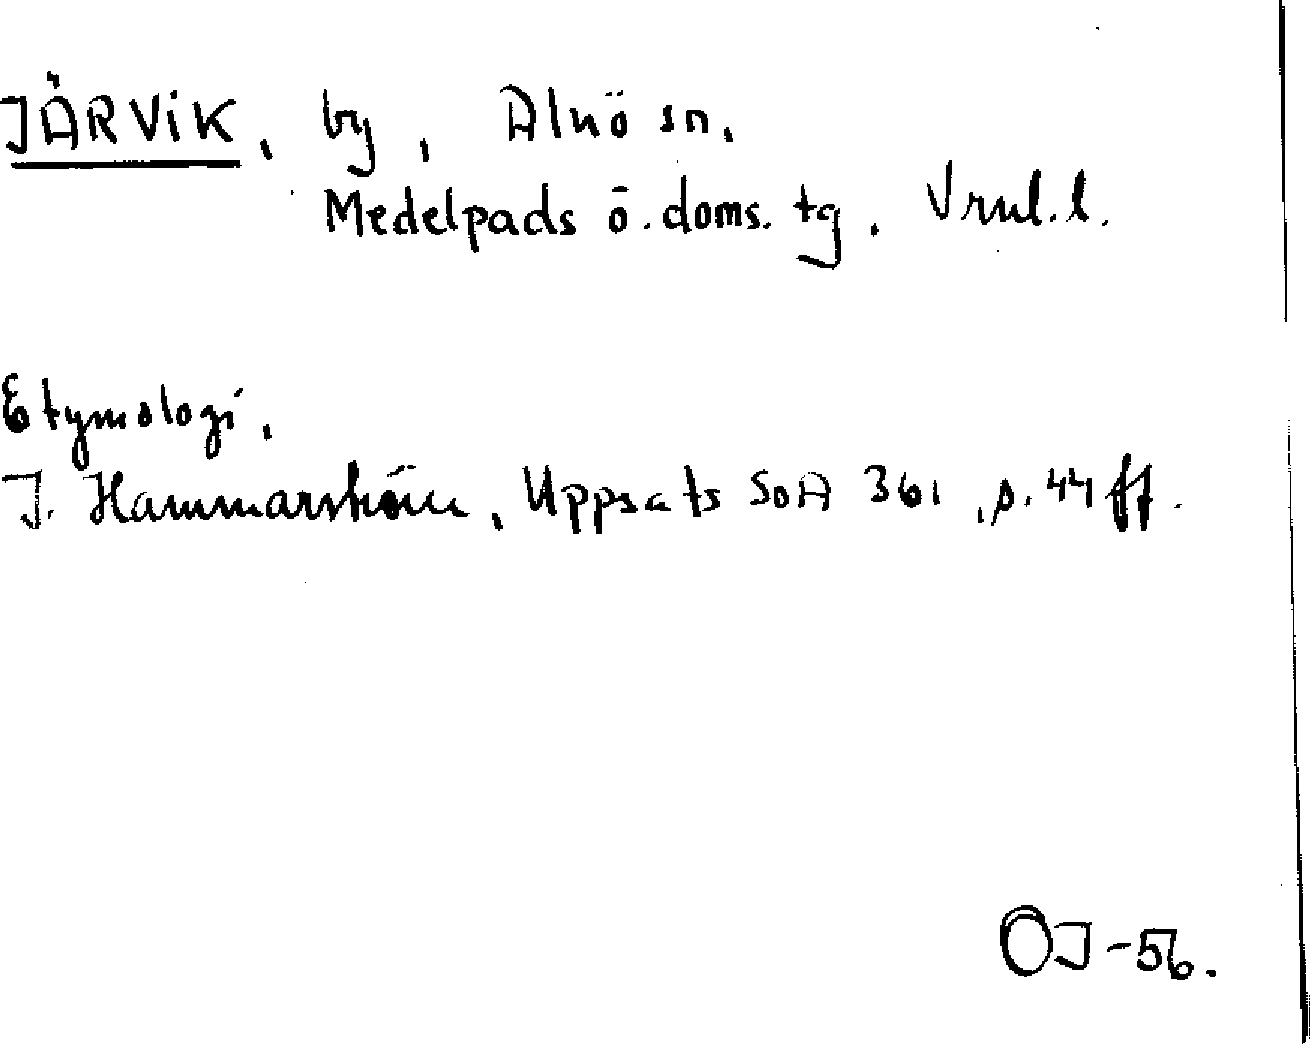 JÄRVIK, by, Alnö sn.
Medelpads ö. doms. tg. Vrnl. l.
Etymologi,
J. Hammarström, Uppsats SOA 361, s. 44 ff.
OJ-56.